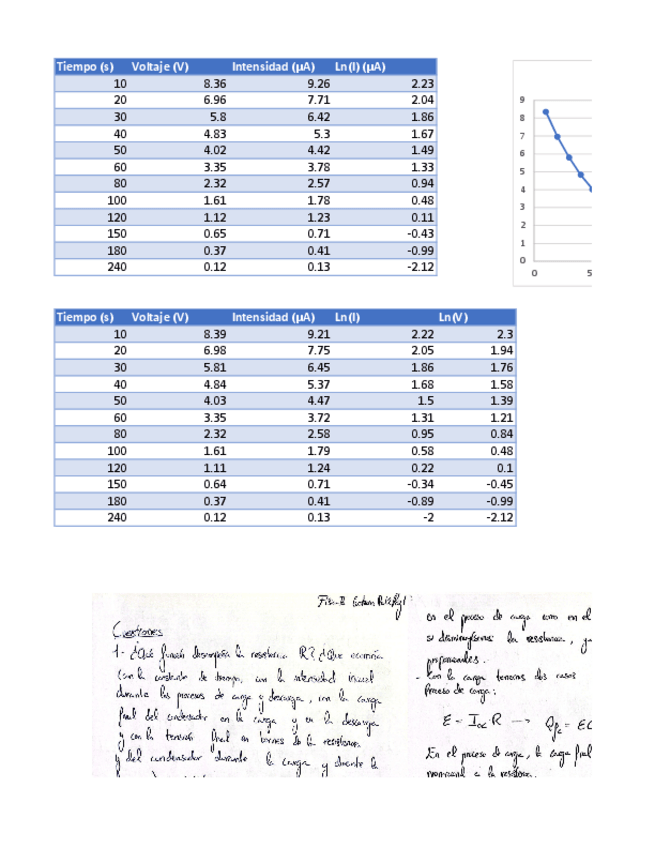 Tiempo (s) Voltaje (V) Intensidad (µA) Ln(I) (µA)
10 8.36 9.26 2.23
20 6.96 7.71 2.04
30 5.8 6.42 1.86
40 4.83 5.3 1.67
50 4.02 4.42 1.49
60 3.35 3.78 1.33
80 2.32 2.57 0.94
100 1.61 1.78 0.48
120 1.12 1.23 0.11
150 0.65 0.71 -0.43
180 0.37 0.41 -0.99
240 0.12 0.13 -2.12
9
8
7
6
5
4
3
2
1
0
0 5
Tiempo (s) Voltaje (V) Intensidad (µA) Ln(I) Ln(V)
10 8.39 9.21 2.22 2.3
20 6.98 7.75 2.05 1.94
30 5.81 6.45 1.86 1.76
40 4.84 5.37 1.68 1.58
50 4.03 4.47 1.5 1.39
60 3.35 3.72 1.31 1.21
80 2.32 2.58 0.95 0.84
100 1.61 1.79 0.58 0.48
120 1.11 1.24 0.22 0.1
150 0.64 0.71 -0.34 -0.45
180 0.37 0.41 -0.89 -0.99
240 0.12 0.13 -2 -2.12
Cuestiones
1- ¿Qué función desempeña la resistencia R? ¿Que ocurriría
con la constante de tiempo, con la intensidad inicial
durante los procesos de carga y descarga, con la carga
final del condensador en la carga y en la descarga
y con la tensión final en bornes de la resistencia
y del condensador durante la carga y durante la
en el proceso de carga como en el
si disminuyésemos la resistencia, y
proporcionales.
- Con la carga tenemos dos casos
Proceso de carga:
En el proceso de carga, la carga final
proporcional a la resistencia.